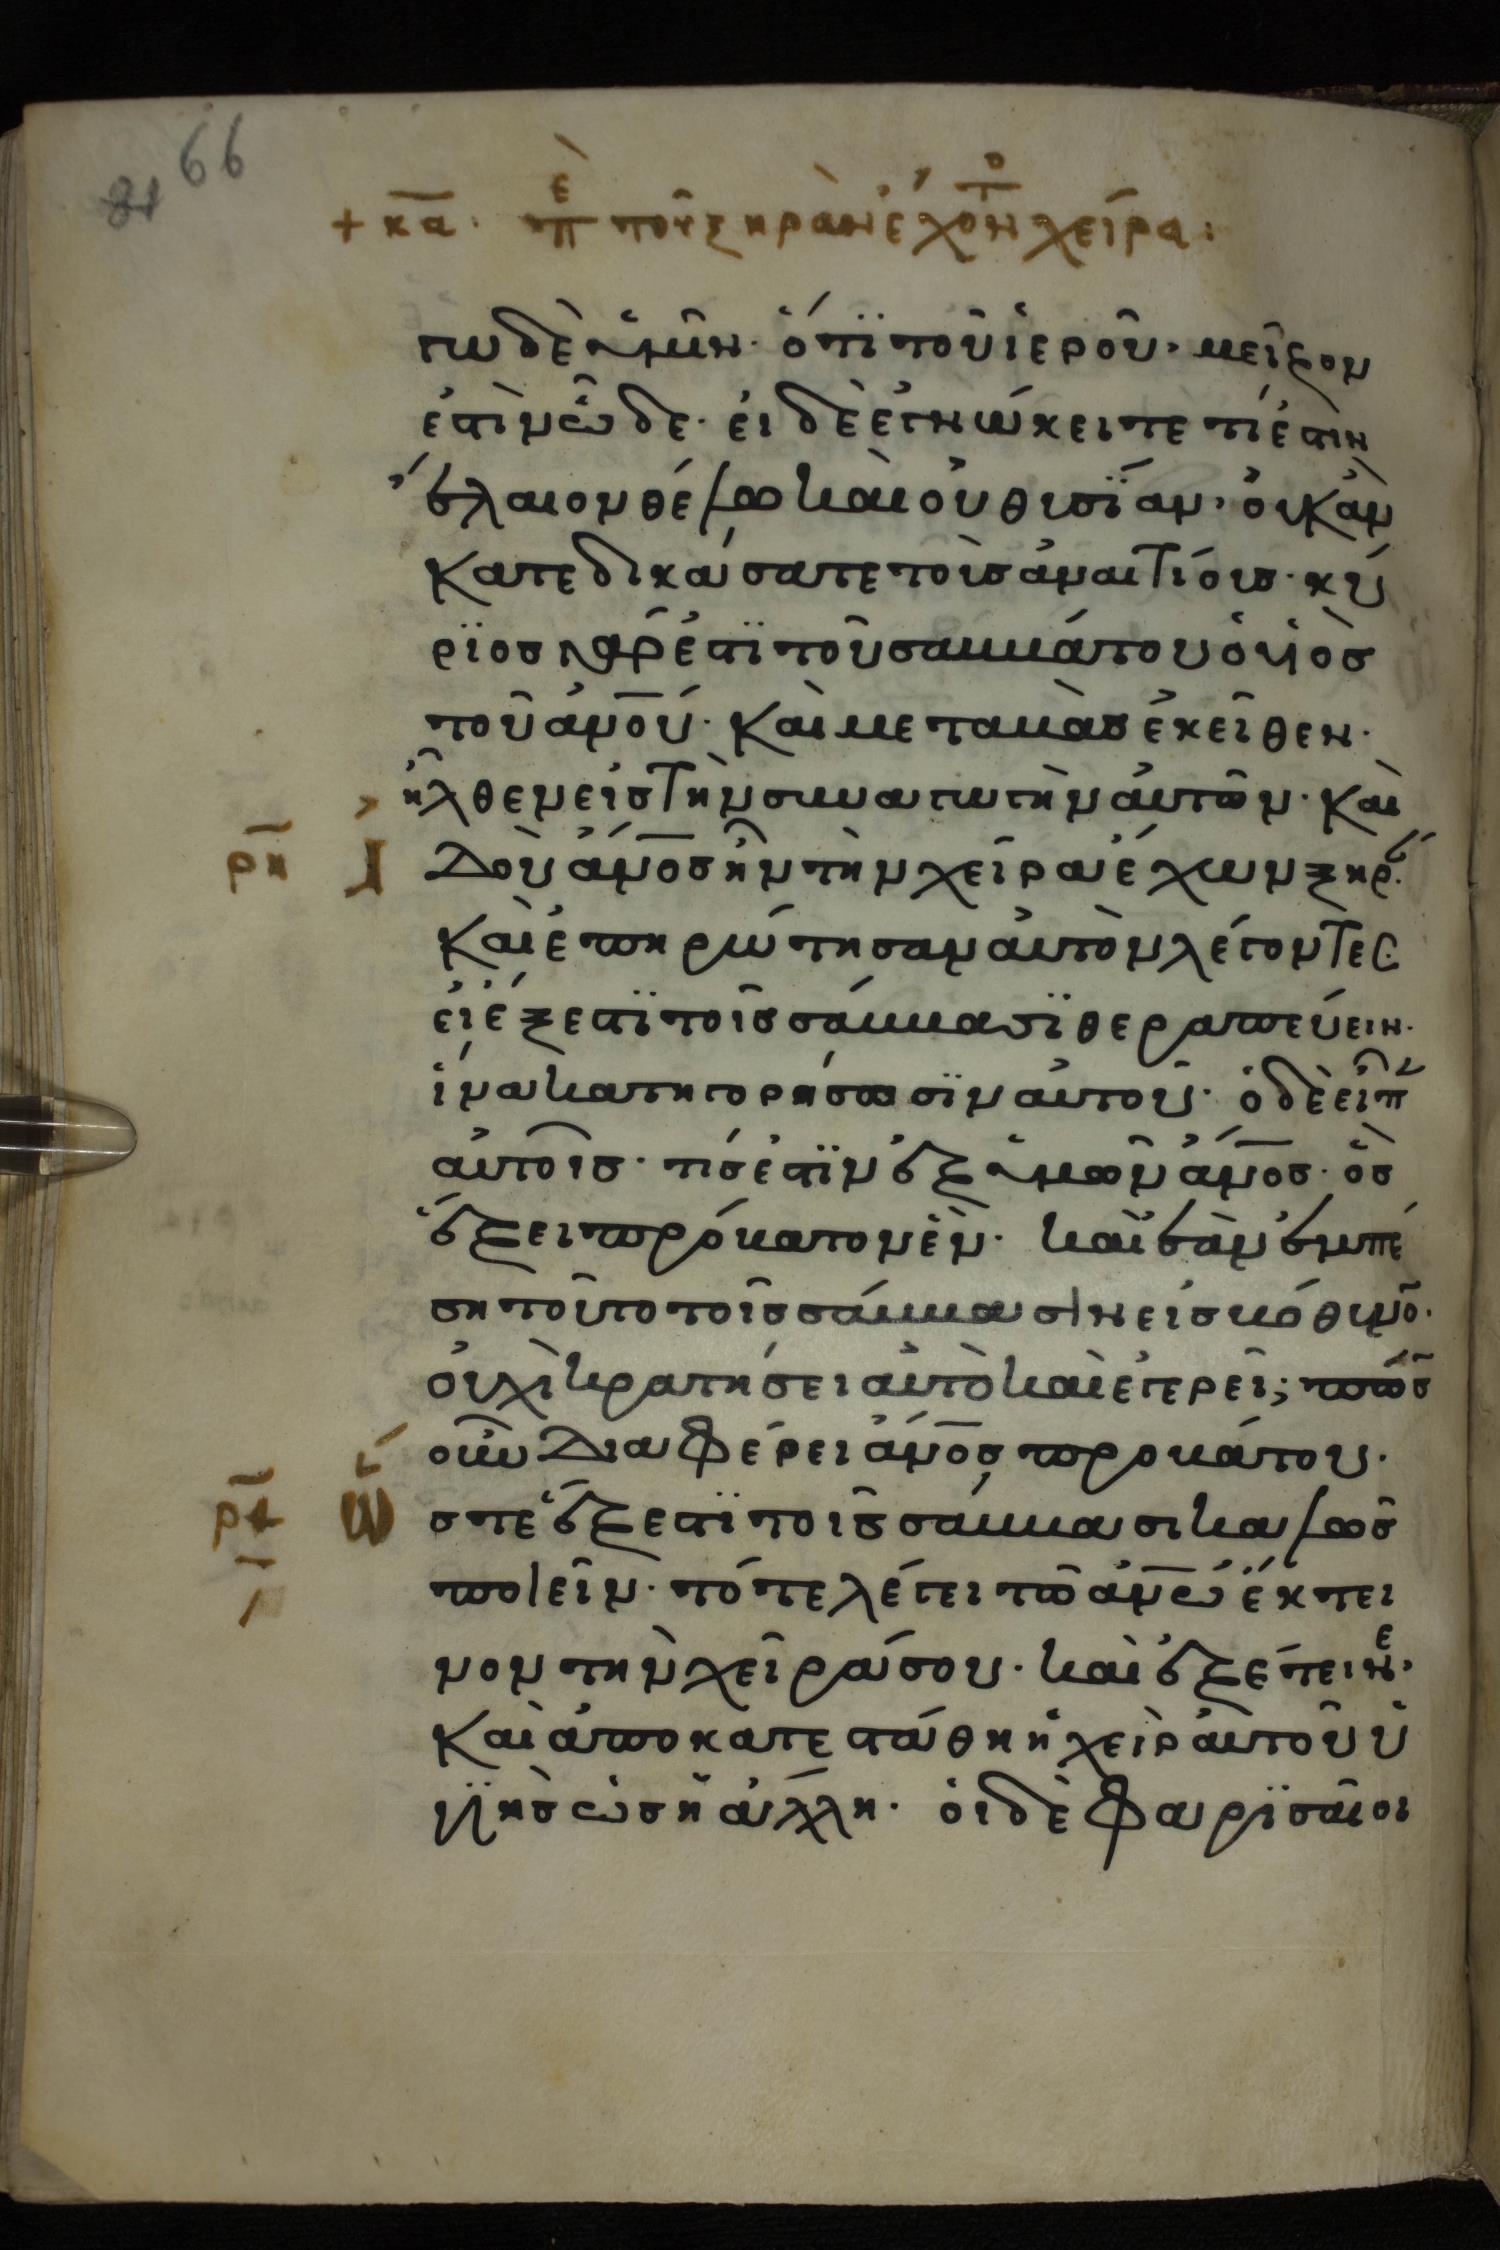 66
81
+ κα· πε τοῦ ξηρὰν ἔχοντο χείρα:
γω δὲ ὑμῖν· ὅτϊ τοῦ ἱεροῦ· μεῖζον
ἐστὶν ὧδε· εἰ δὲ ἐγνώκειτε τί ἐστιν
ἔλαιον θέλω καὶ οὐ θυσΐαν· οὐκ ἂν
κατεδικάσατε τοὺσ ἀναιτίουσ· κύ
ρϊοσ γάρ ἐστϊ τοῦ σαββάτου ὁ υἱὸσ
τοῦ ἀνου· Καὶ μεταβὰσ ἐκεῖθεν·
ἦλθεν εἰσ τὴν συναγωγὴν αὐτῶν· καὶ
ρη Ι
δοὺ ἀνοσ ἦν τὴν χεῖρα ἔχων ξηρ·
Καὶ ἐπηρώτησαν αὐτὸν λέγοντεσ·
εἰ ἔξεστϊ τοῖσ σάββασϊ θεραπεύειν·
ἵνα κατηγορήσωσϊν αὐτοῦ· ὁ δὲ εἶπ
αὐτοῖσ· τίσ ἐστϊν ἐξ ὑμῶν ἀνοσ· ὃσ
ἕξει πρόβατον ἓν· καὶ ἐὰν ἐμπέ
ση τοῦτο τοῖσ σάββασιν εἰσ βόθυνο·
οὐχὶ κρατήσει αὐτὸ καὶ ἐγερεῖ; πόσω
οὖν διαφέρει ἀνοσ προβάτου·
ω
στε ἔξεστϊ τοῖσ σάββασι καλῶσ
ποιεῖν· τότε λέγει τῶ ἀνω ἔκτει
νον τὴν χεῖρά σου· καὶ ἐξέτεινε·
Καὶ ἀποκατεστάθη ἡ χεὶρ αὐτοῦ ὑ
γϊὴσ ὡσ ἡ ἄλλη· οἱ δὲ φαρϊσαῖοι